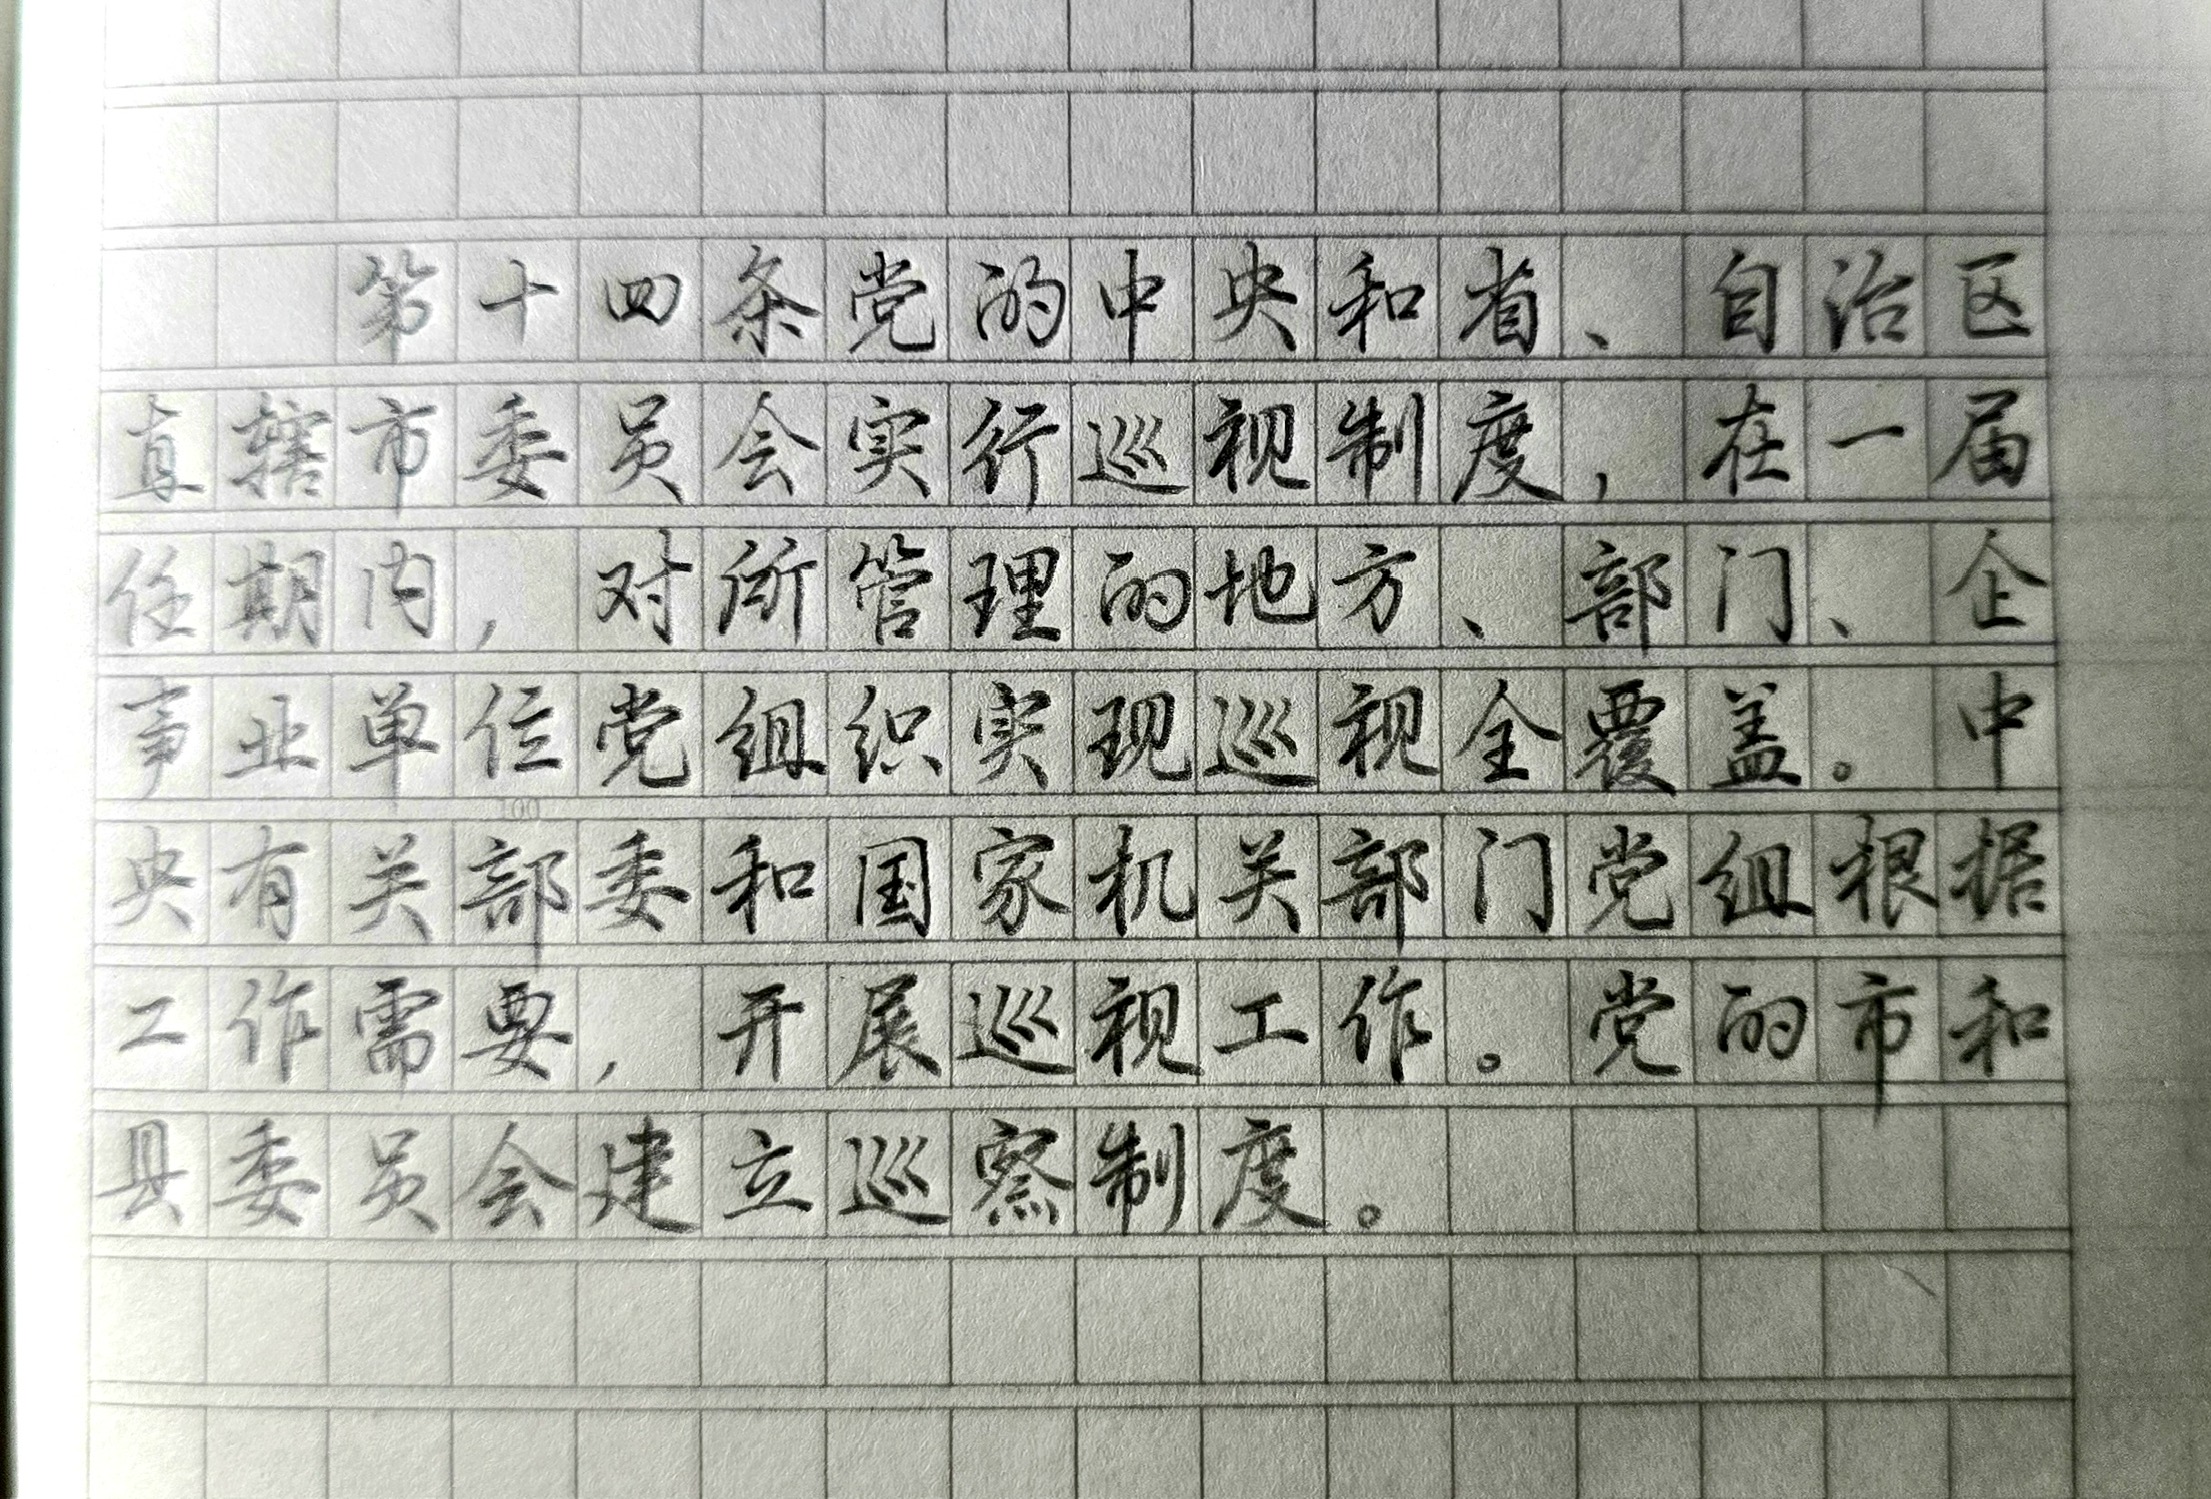 第十四条党的中央和省、自治区
直辖市委员会实行巡视制度，在一届
任期内，对所管理的地方、部门、企
事业单位党组织实现巡视全覆盖。中
100
央有关部委和国家机关部门党组根据
工作需要，开展巡视工作。党的市和
县委员会建立巡察制度。